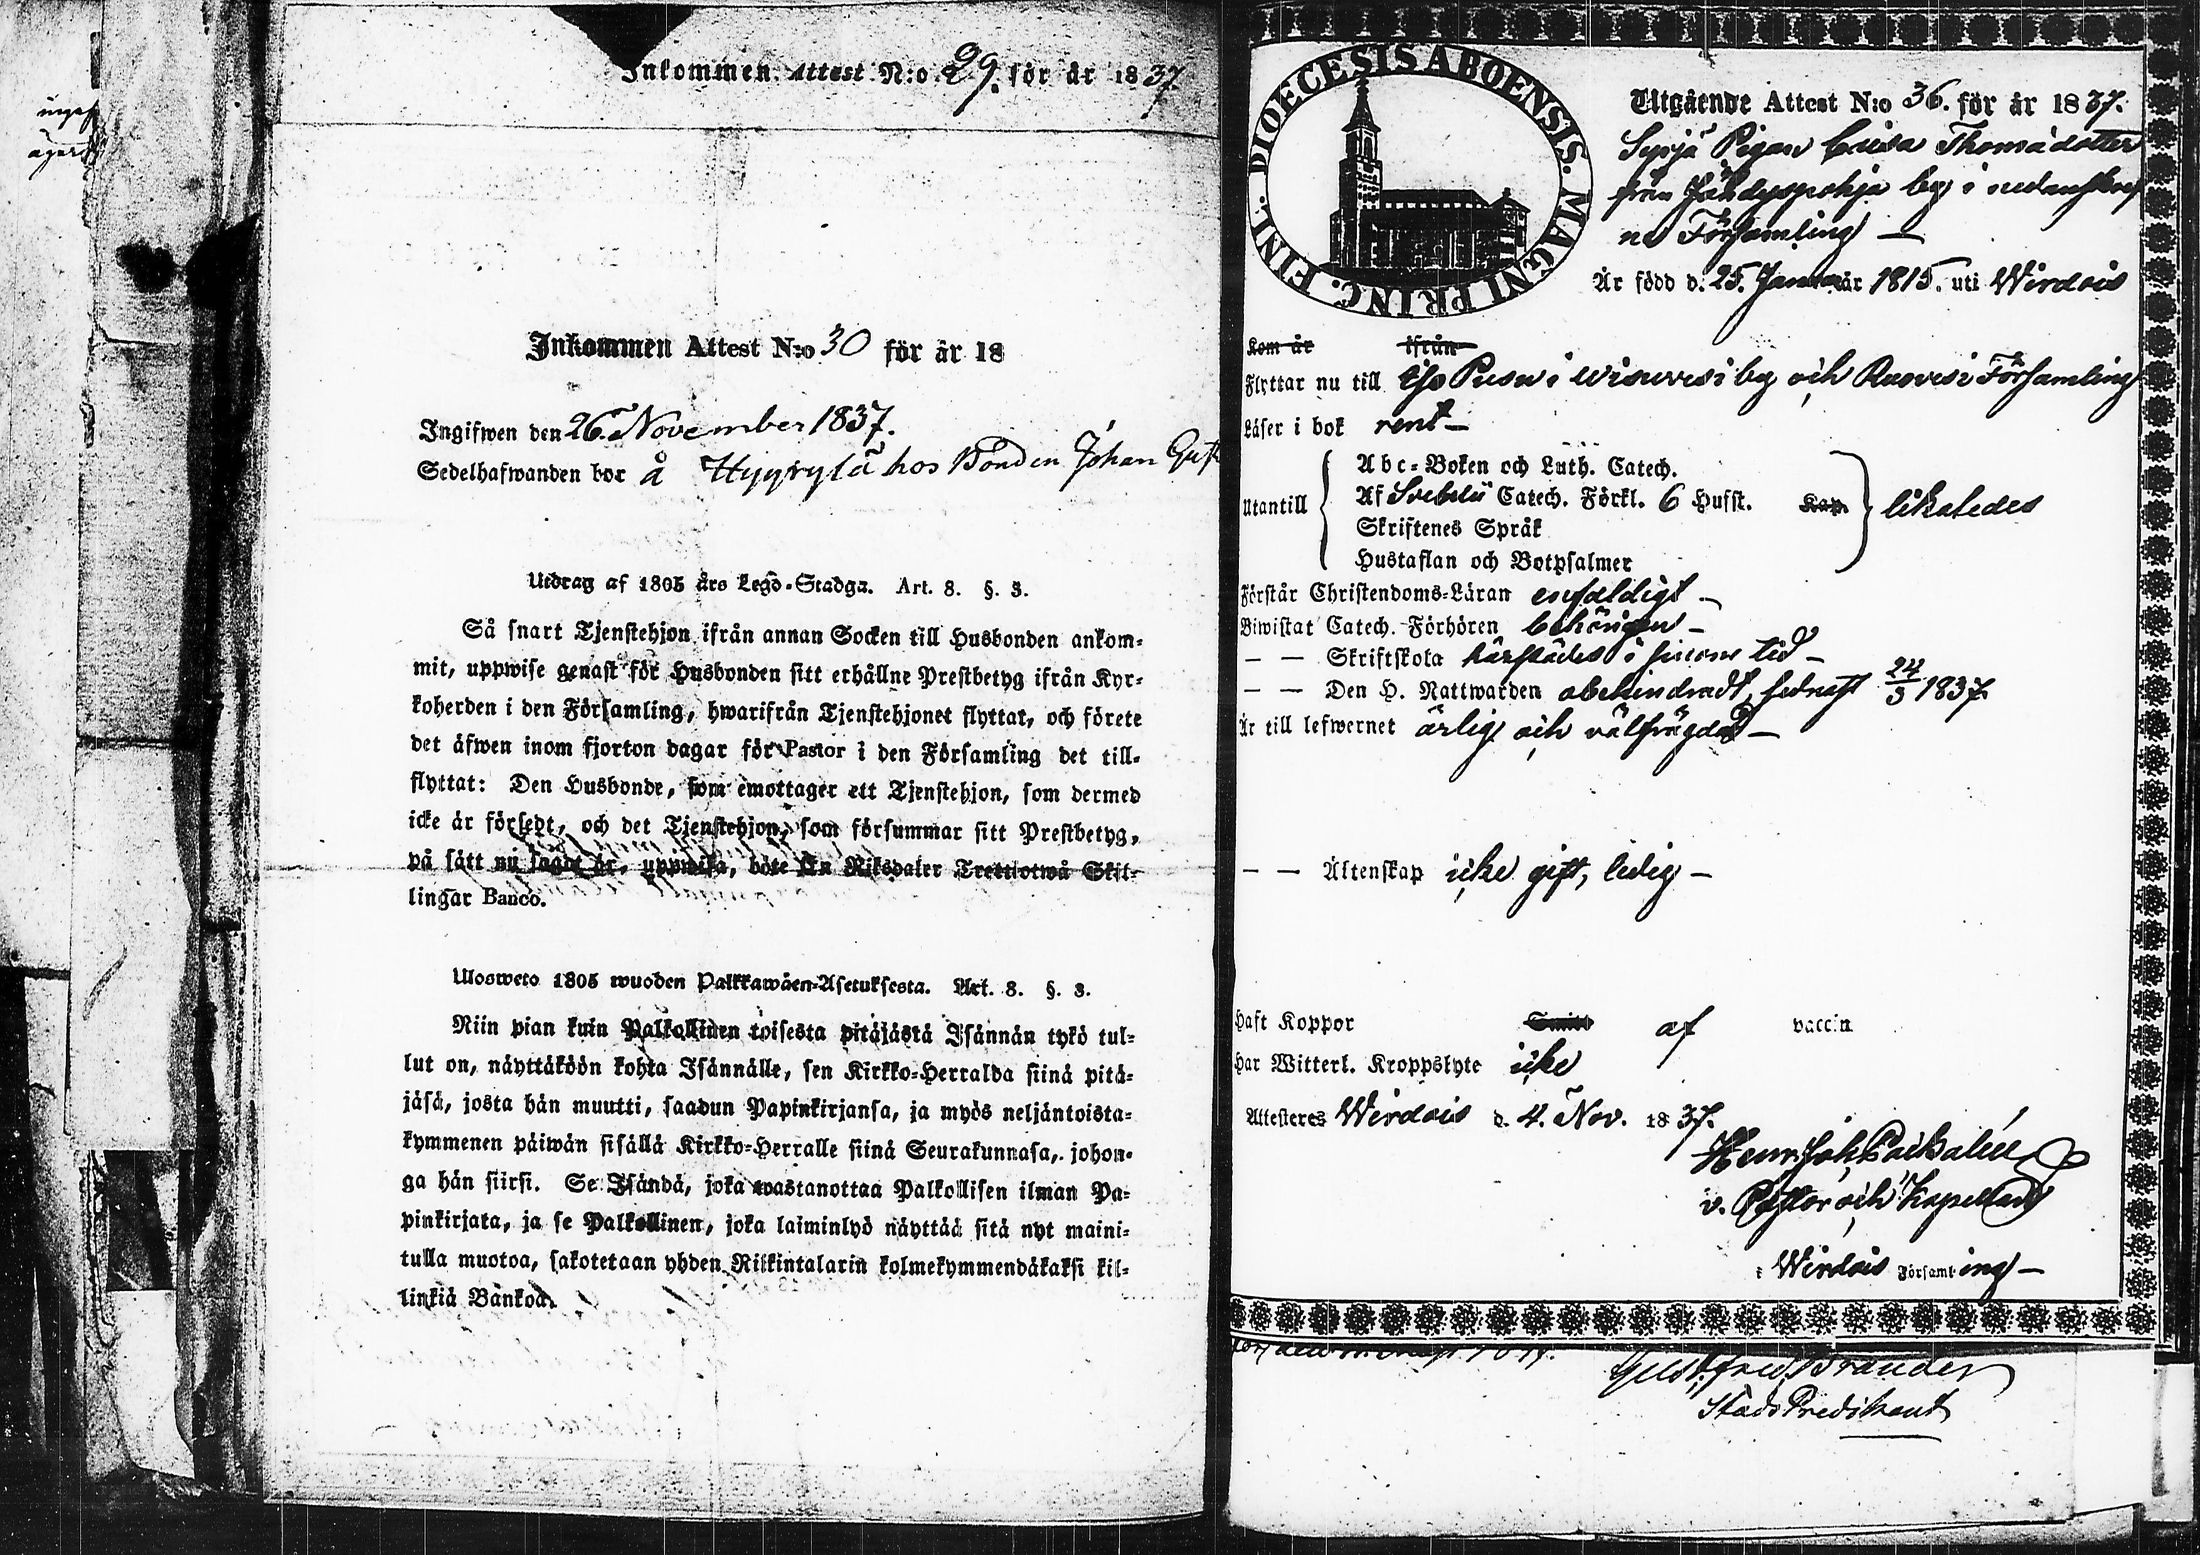 Inkommen Attest N:o 29. för år 1837.
Inkommen Attest N:o 30 för år 18
Ingifwen den 26. November 1837.
Sedelhafwanden bor å Hyyrylä hos Bonden Johan Gust
Utdrag af 1805 års Lego-Stadga. Art. 8. §. 3.
Så snart Tjenstehjon ifrån annan Socken till Husbonden ankom-
mit, uppwise genast för Husbonden sitt erhållne Prestbetyg ifrån Kyr-
koherden i den Församling, hwarifrån Tjenstehjonet flyttat, och förete
det äfwen inom fjorton dagar för Pastor i den Församling det till-
flyttat: Den Husbonde, som emottager ett Tjenstehjon, som dermed
icke är försedt, och det Tjenstehjon, som försummar sitt Prestbetyg,
på sätt nu sagdt är, uppwisa, böte En Riksdaler Trettiotwå Skil-
lingar Banco.
Ulosweto 1805 wuoden Palkkawäen-Asetuksesta. Art. 8. §. 3.
Niin pian kuin Palkollinen toisesta pitäjästä Isännän tykö tul-
lut on, näyttäköön kohta Isännälle, sen Kirkko-Herralda siinä pitä-
jäsä, josta hän muutti, saadun Papinkirjansa, ja myös neljäntoista-
kymmenen päiwän sisällä Kirkko-Herralle siinä Seurakunnasa, johon-
ga hän siirsi. Se Isändä, joka wastanottaa Palkollisen ilman Pa-
pinkirjata, ja se Palkollinen, joka laiminlyö näyttää sitä nyt maini-
tulla muotoa, sakotetaan yhden Riikintalarin kolmekymmendäkaksi kil-
linkiä Bankoa.
DIOECESIS ABOENSIS. MAGNI PRINC. FINL.
Utgående Attest N:o 36. för år 1837.
Pigan Caisa Thomädotter
från Jähdyspohja by i nedanskref
ne Församling —
Är född d. 25. Januar är 1815. uti Wirdois
Kom år ifrån
Flyttar nu till Pusu i wisuvesi by och Ruovesi Församling
Läser i bok rent —
Utantill
Abc-Boken och Luth. Catech.
Af Svebelii Catech. Förkl. 6 Hufst. Kap. likaledes
Skriftenes Språk
Hustaflan och Botpsalmer
Förstår Christendoms-Läran enfaldigt —
Biwistat Catech. Förhören behörigen —
— — Skriftskola härstädes i sinom tid —
— — Den H. Nattwarden obehindradt, sednast 24/9 1837.
Är till lefwernet ärlig och välfrägdad —
— — Äktenskap icke gift, ledig —
Haft Koppor Smitt af vaccin
Har Witterl. Kroppslyte icke
Attesteres Wirdois d. 4. Nov. 1837.
Henr. Joh.
v. Pastor och Kapellan
i Wirdois Församling —
Gust. Fred. Brander
Stads Predikant